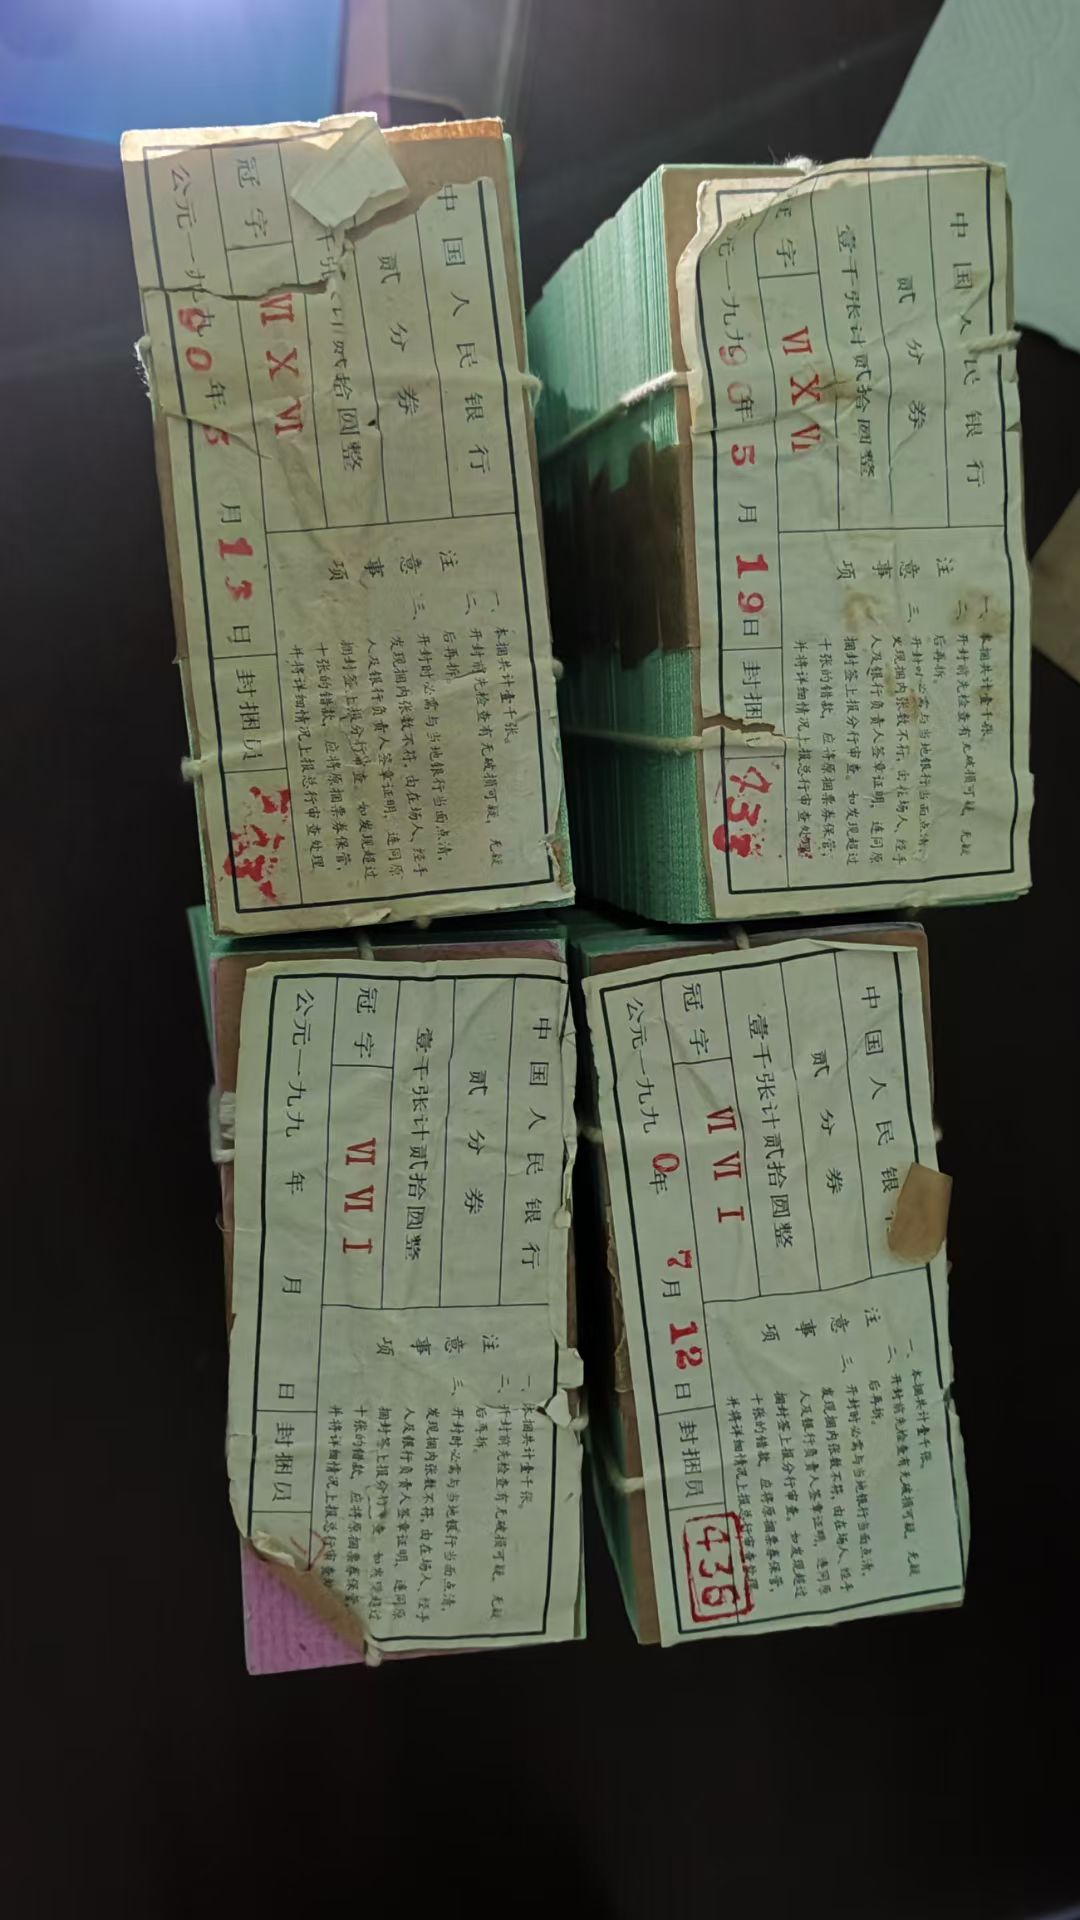 中国人民银行
贰分券
贰拾圆整
冠字
VI X VI
公元一九九0年5月13日
封捆员
注意事项
一、本捆共计壹千张。
二、开封前先检查有无破损可疑，无疑
后再拆。
三、开封时必需与当地银行当面点清，
发现捆内张数不符，由在场人、经手
人及银行负责人签章证明，连同原
捆封签上报分行审查。如发现超过
十张的错款，应将原捆票券保管，
并将详细情况上报总行审查处理
中国人民银行
贰分券
壹千张计贰拾圆整
字
VI X VI
元一九90年5月19日
封捆
438
注意事项
一、本捆共计壹千张。
二、开封前先检查有无破损可疑，无疑
后再拆。
三、开封时必需与当地银行当面点清，
发现捆内张数不符，由在场人、经手
人及银行负责人签章证明，连同原
捆封签上报分行审查。如发现超过
十张的错款，应将原捆票券保管，
并将详细情况上报总行审查处理
中国人民银行
贰分券
壹千张计贰拾圆整
冠字
VI VI I
公元一九九 年 月 日
封捆员
注意事项
一、本捆共计壹千张。
二、开封前先检查有无破损可疑，无疑
后再拆。
三、开封时必需与当地银行当面点清，
发现捆内张数不符，由在场人、经手
人及银行负责人签章证明，连同原
捆封签上报分行审查。如发现超过
十张的错款，应将原捆票券保管，
并将详细情况上报总行审查
中国人民银
贰分券
壹千张计贰拾圆整
冠字
VI VI I
公元一九九0年7月12日
封捆员
436
注意事项
一、本捆共计壹千张。
二、开封前先检查有无破损可疑，无疑
后再拆。
三、开封时必需与当地银行当面点清，
发现捆内张数不符，由在场人、经手
人及银行负责人签章证明，连同原
捆封签上报分行审查。如发现超过
十张的错款，应将原捆票券保管，
并将详细情况上报总行审查处理